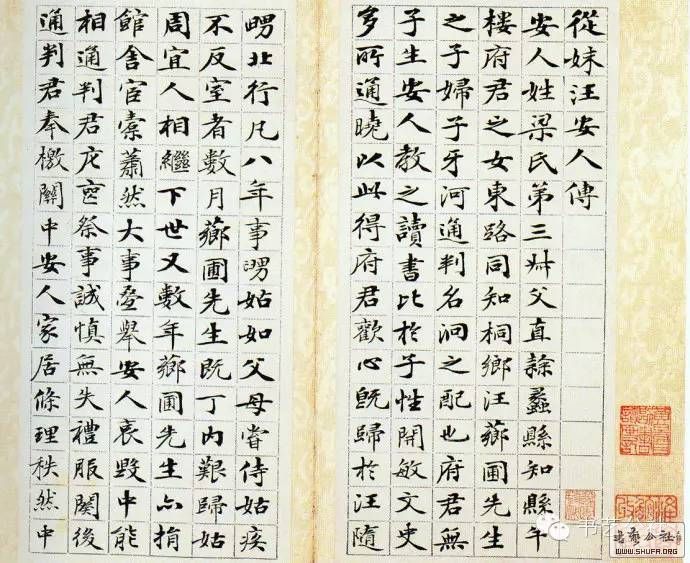 從妹汪安人傳
安人姓梁氏第三叔父直隸蠡縣知縣午
樓府君之女東路同知桐鄉汪薌圃先生
之子婦子牙河通判名泂之配也府君無
子生安人教之讀書比於子性開敏文史
多所通曉以此得府君歡心既歸於汪隨
舅北行凡八年事舅姑如父母嘗侍姑疾
不反室者數月薌圃先生既丁内艱歸姑
周宜人相繼下世又數年薌圃先生亦捐
館舍宦橐蕭然大事疊舉安人哀毀中能
相通判君庀喪祭事誠慎無失禮服闋後
通判君奉檄關中安人家居條理秩然中
书艺公社
WWW.SHUFA.ORG